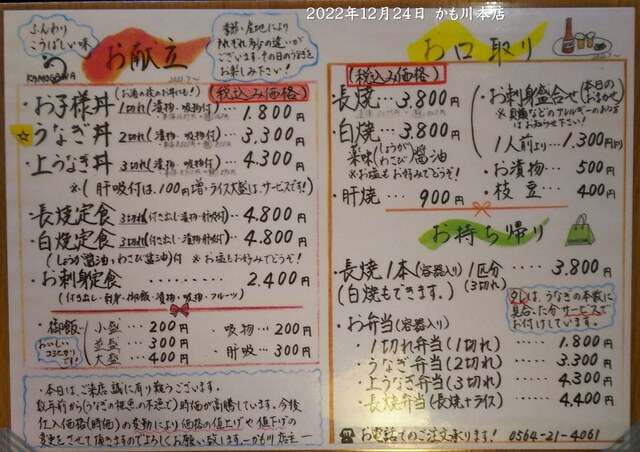 2022年12月24日 かも川本店
ふんわり
こうばしい味
KAMOGAWA
お献立
2022.7~
季節・産地により
それぞれ多少の違いが
ございます。その日のうなぎを
お楽しみ下さい!
(お酒の後のお丼も!)
(税込み価格)
・お子様丼 1切れ(漬物・吸物付)・・1.800円
☆うなぎ丼 2切れ(漬物・吸物付)・・・3,300円
・上うなぎ丼 3切れ(漬物・吸物付)・・・4.300円
※(肝吸付は、100円増・ライス大盛はサービスです!)
長焼定食 3切れ(付き出し・漬物・肝吸付)・・4.800円
白焼定食 3切れ(付き出し・漬物・肝吸付)・・4.800円
(しょうが醤油、わさび醤油)付 ※お塩もお好みでどうぞ!
・お刺身定食・・・・・・・・・・2.400円
(付き出し・刺身・御飯・漬物・吸物・フルーツ)
・御飯
小盛・・・200円
並盛・・・300円
大盛・・・400円
おいしい
コシヒカリ
です!
・吸物・・200円
・肝吸・・・300円
・本日は、ご来店 誠に有り難うございます。
数年前から(うなぎの稚魚の不漁で)時価が高騰しています。今後
仕入価格(時価)の変動により価格の値上げや値下げの
変更をさせて頂きますのでよろしくお願い致します。ーかも川 店主ー
お口取り
(税込み価格)
長焼・・・3.800円
・白焼・・・3.800円
薬味(しょうが わさび)醤油
※お塩もお好みでどうぞ!
・肝焼・・・900円
・お刺身盛合せ(本日のおまかせ)
※貝類などのアレルギーのある方は
お知らせ下さい!
1人前より・・・1.300円(円)
・お漬物・・・・500円
・枝豆・・・・400円
お持ち帰り
・長焼1本(容器入り)1区分(3切れ)・・・・・3.800円
(白焼もできます。)
タレは、うなぎの本数に
見合った分サービスで
お付けしています。
・お弁当(容器入り)
・1切れ弁当(1切れ)・・・・・1.800円
・うなぎ弁当(2切れ)・・・・3.300円
・上うなぎ弁当(3切れ)・・・4,300円
・長焼弁当(長焼+ライス)・・・・4,400円
☎お電話でのご注文承ります! 0564-21-4061